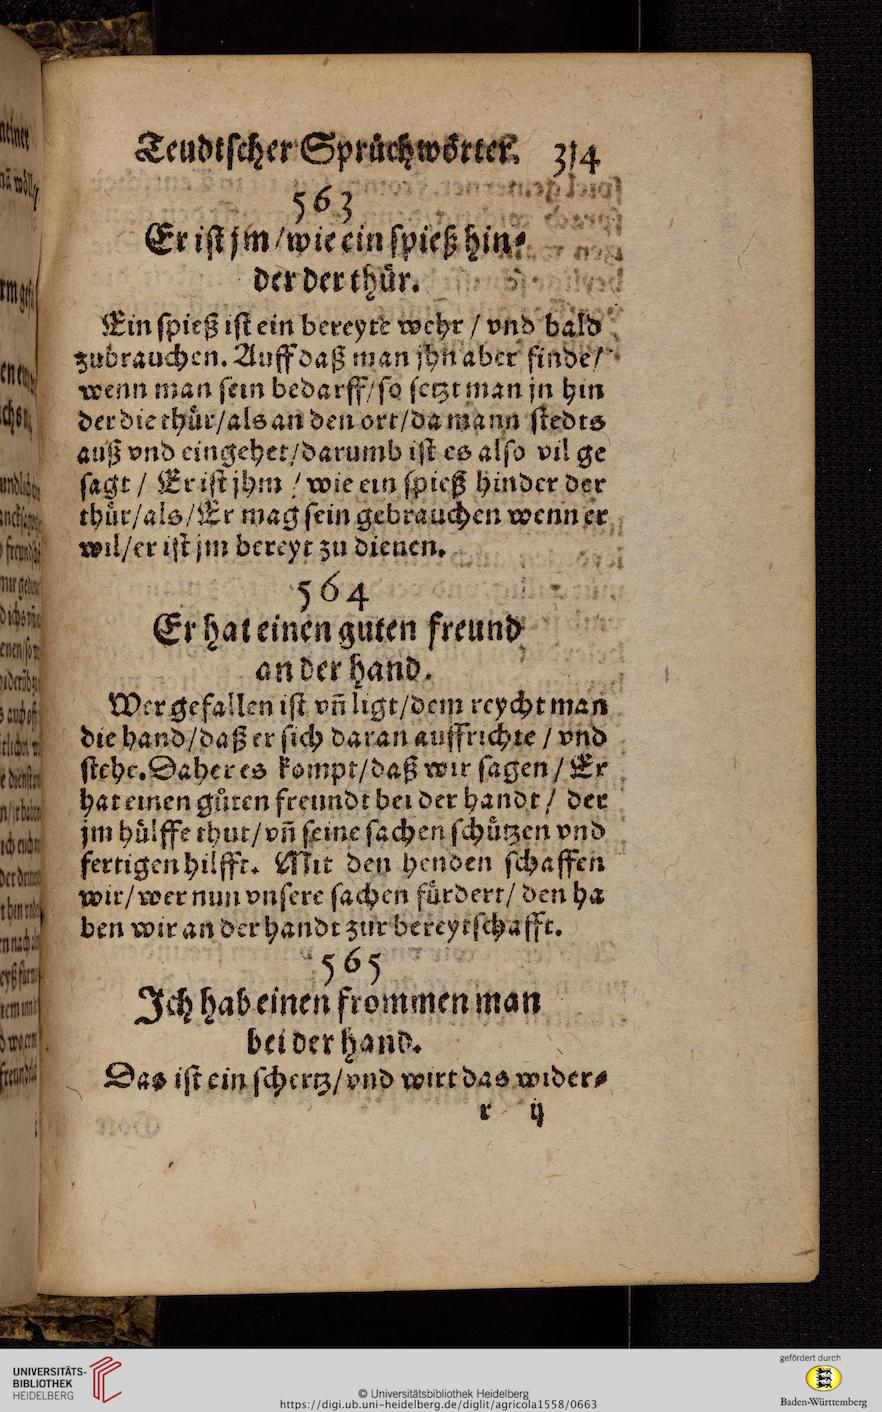 Teudtscher Sprüchwörter. 314
563
Er ist jm/wie ein spieß hin⸗
der der thür.
Ein spieß ist ein bereyte wehr / vnd bald
zubrauchen. Auff daß man jhn aber finde/
wenn man sein bedarff/so setzt man jn hin
der die thür/als an den ort/da mann stedts
auß vnd eingehet/darumb ist es also vil ge
sagt / Er ist jhm / wie ein spieß hinder der
thür/als/Er mag sein gebrauchen wenn er
wil/er ist jm bereyt zu dienen.
564
Er hat einen guten freund
an der hand.
Wer gefallen ist vñ ligt/dem reycht man
die hand/daß er sich daran auffrichte / vnd
stehe. Daher es kompt/daß wir sagen / Er
hat einen gůten freundt bei der handt / der
jm hülffe thut/vñ seine sachen schützen vnd
fertigen hilfft. Mit den henden schaffen
wir/wer nun vnsere sachen fürdert/ den ha
ben wir an der handt zur bereytschafft.
565
Ich hab einen frommen man
bei der hand.
Das ist ein schertz/vnd wirt das wider⸗
r ij
UNIVERSITÄTS-
BIBLIOTHEK
HEIDELBERG
© Universitätsbibliothek Heidelberg
https://digi.ub.uni-heidelberg.de/diglit/agricola1558/0663
gefördert durch
Baden-Württemberg